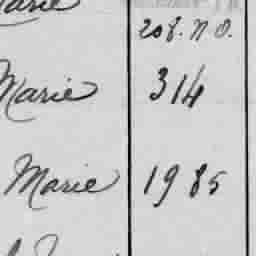 Marie
208. N O.
Marie 314
Marie 1985